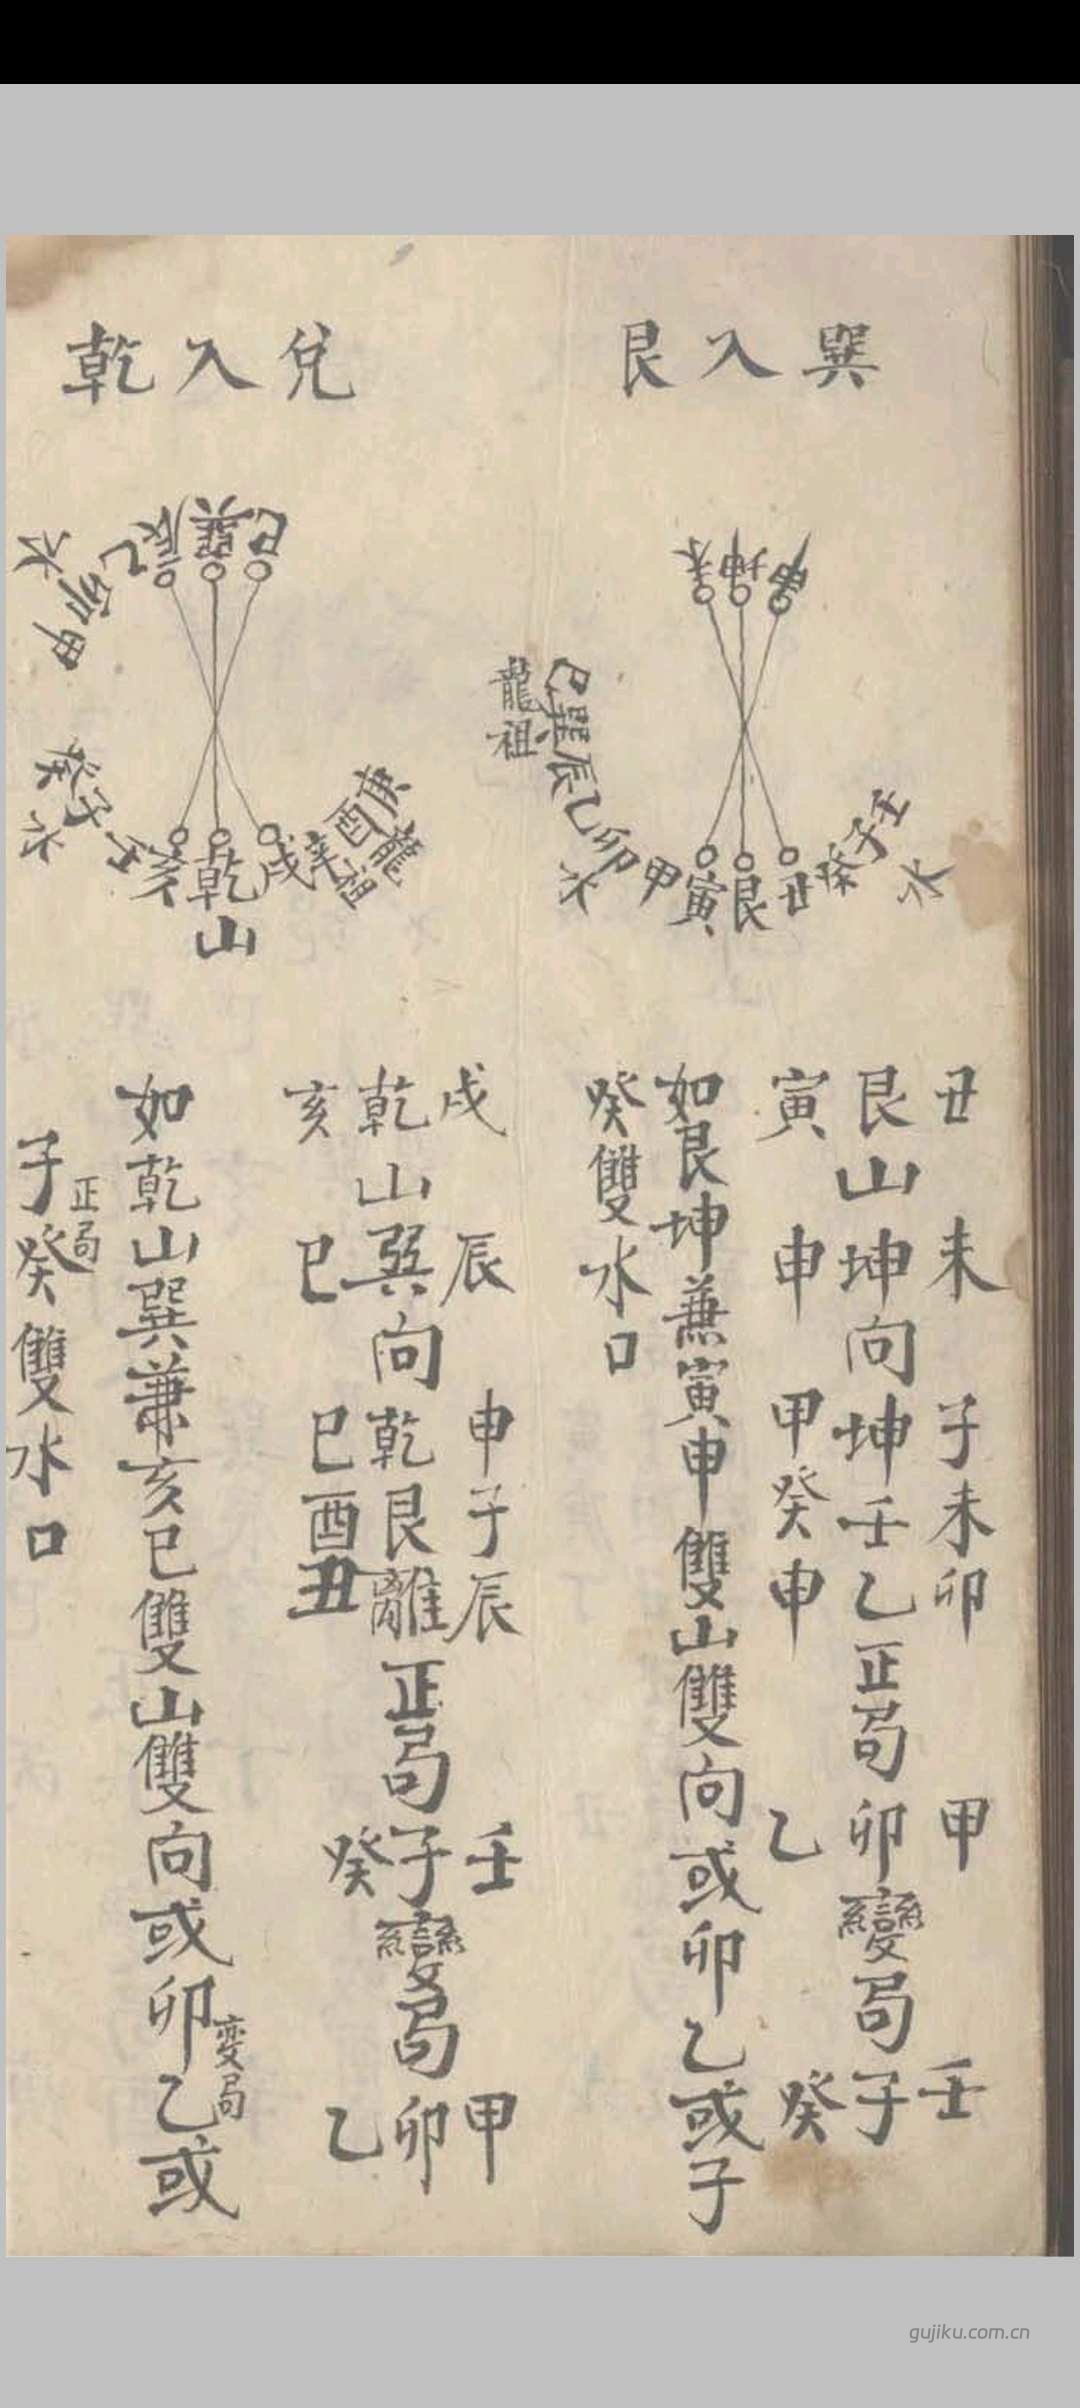 巽入艮
未坤申
巳巽辰乙卯甲寅艮丑癸子壬
龍祖
水
水
丑 未 子未卯 甲 壬
艮山坤向坤壬乙正局卯變局子
寅 申 甲癸申 乙 癸
如艮坤兼寅申雙山雙向或卯乙或子
癸雙水口
兌入乾
乙辰巽巳
甲卯
水
癸子壬亥乾戌辛酉庚
水
龍祖
山
戌 辰 申子辰 壬 甲
乾山巽向乾艮離正局子變局卯
亥 巳 巳酉丑 癸 乙
如乾山巽兼亥巳雙山雙向或卯乙或
变局
正局
子癸雙水口
gujiku.com.cn